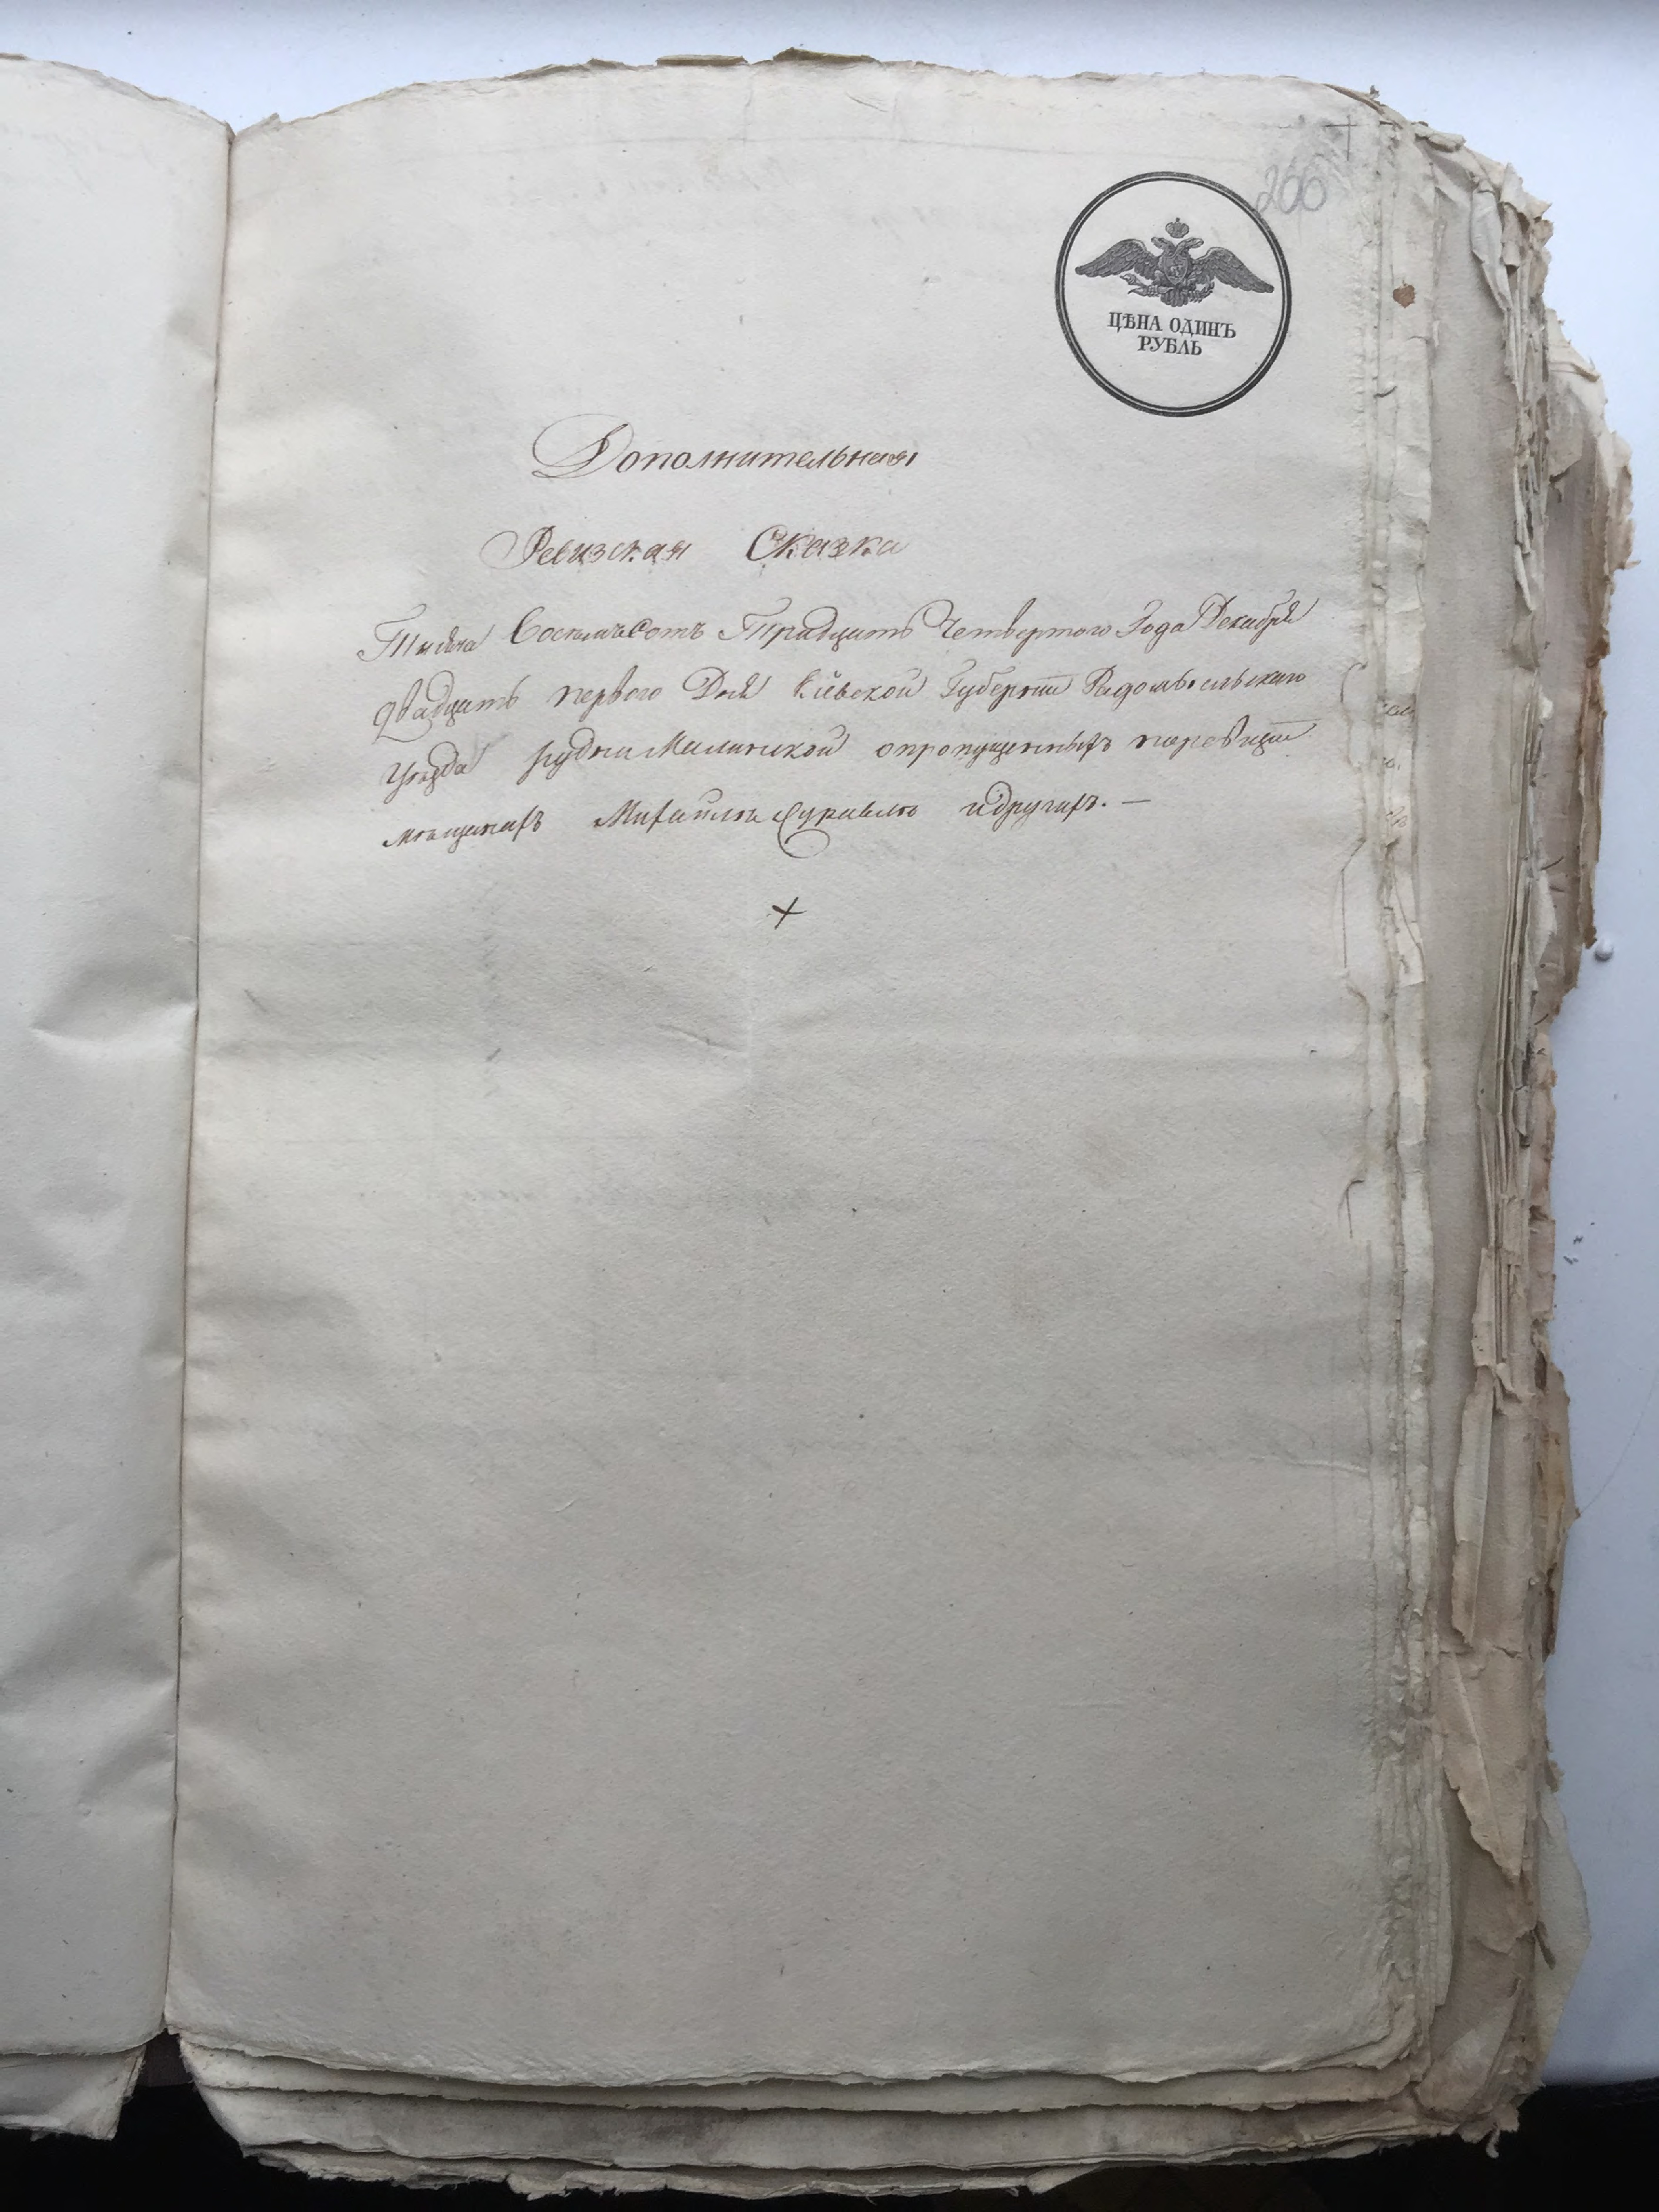 266
ЦѢНА ОДИНЪ
РУБЛЬ
Дополнительная
Ревизская Сказка
Тысяча Восемъсотъ Тридцать Четвертого Года Декабря
двадцать первого Дня Кіевской Губерніи Радомысльскаго
уезда рудни Малинской опропущенныхъ поревизіи
мещанахъ Михайле Журавле идругихъ. —